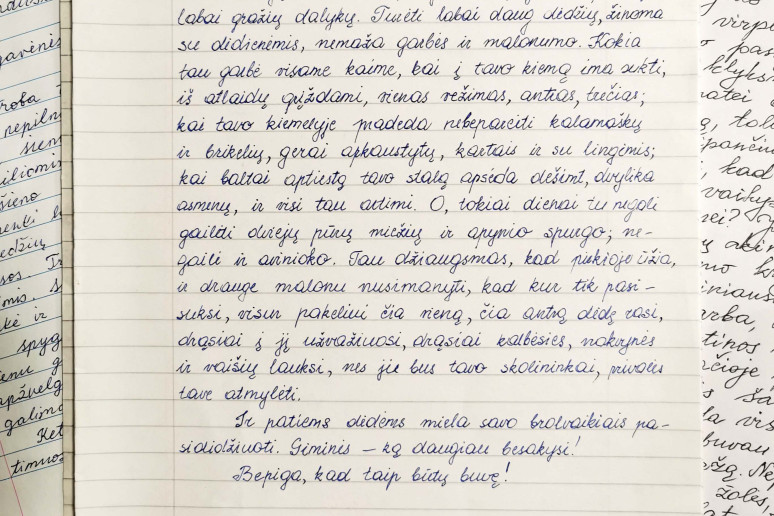 gavėnis
nepiln
šieno
edžių
kė ir
spyg
galima
Ket
timuos
labai gražių dalykų. Turėti labai daug dėdžių, žinoma
su dėdienėmis, nemaža garbės ir malonumo. Kokia
tau garbė visame kaime, kai į tavo kiemą ima sukti,
iš atlaidų grįždami, vienas vežimas, antras, trečias;
kai tavo kiemelyje pradeda nebepareiti kalamaškų
ir brikelių, gerai apkaustytų, kartais ir su lingimis;
kai baltai aptiestą tavo stalą apsėda dešimt, dvylika
asmenų, ir visi tau artimi. O, tokiai dienai tu negali
gailėti dviejų pūrų miežių ir apynio spurgo; ne-
gaili ir avinioko. Tau džiaugsmas, kad pirkioje ūžia,
ir drauge malonu nusimanyti, kad kur tik pasi-
suksi, visur pakeliui čia vieną, čia antrą dėdę rasi,
drąsiai į jį užvažiuosi, drąsiai kalbėsies, nakvynės
ir vaišių lauksi, nes jie bus tavo skolininkai, privalės
tave atmylėti.
Ir patiems dėdėms miela savo brolvaikiais pa-
sididžiuoti. Giminės – ką daugiau besakysi!
Bepiga, kad taip būtų buvę!
virpi
pas
kad
vaiky
arba,
tinos
šā
la vis
buvau
žolės,